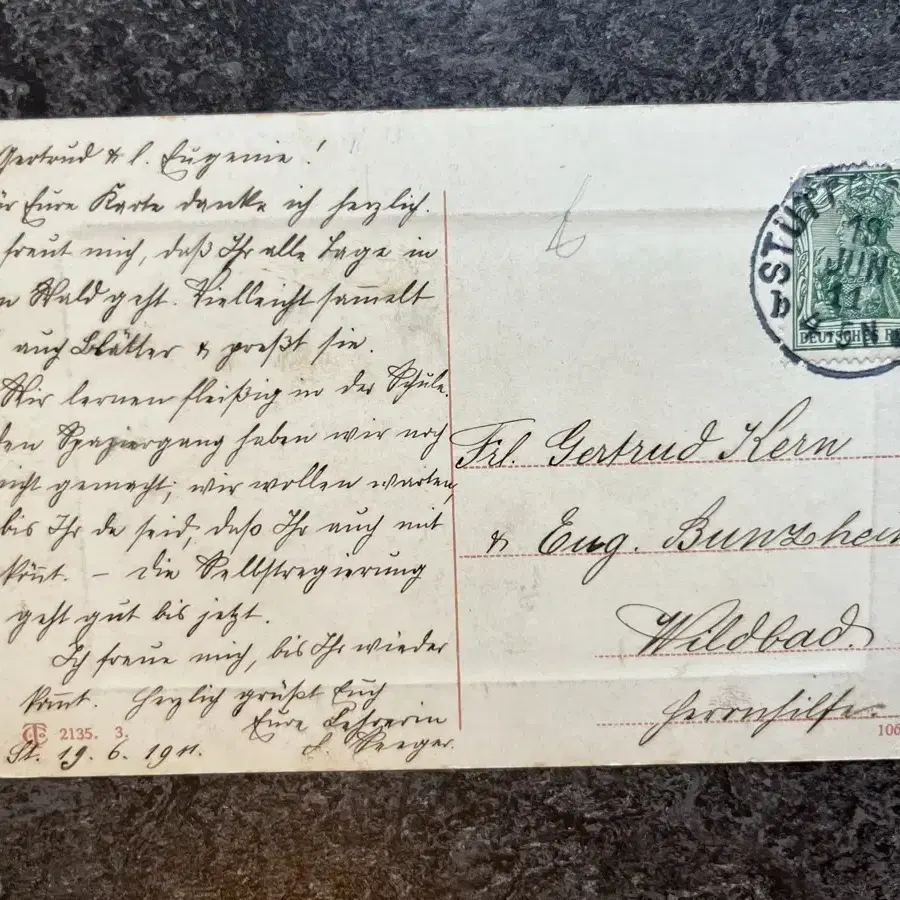 Gertrud & l. Eugenie!
für Eure Karte danke ich herzlich.
freut mich, daß Ihr alle Tage in
n Wald geht. Vielleicht sammelt
auch Blätter & preßt sie.
Wir lernen fleißig in der Schule.
den Spaziergang haben wir noch
nicht gemacht; wir wollen warten,
bis Ihr da seid, daß Ihr auch mit
könnt. – Die Selbstregierung
geht gut bis jetzt.
Ich freue mich, bis Ihr wieder
kommt. Herzlich grüßt Euch
Eure Lehrerin
S. Seeger.
St. 19. 6. 1911.
2135. 3.
STUTT
19
JUN
11
5-6N
b
DEUTSCHES R
Frl. Gertrud Kern
& Eug. Bunzshei
Wildbad.
Herrnhilfe.
106